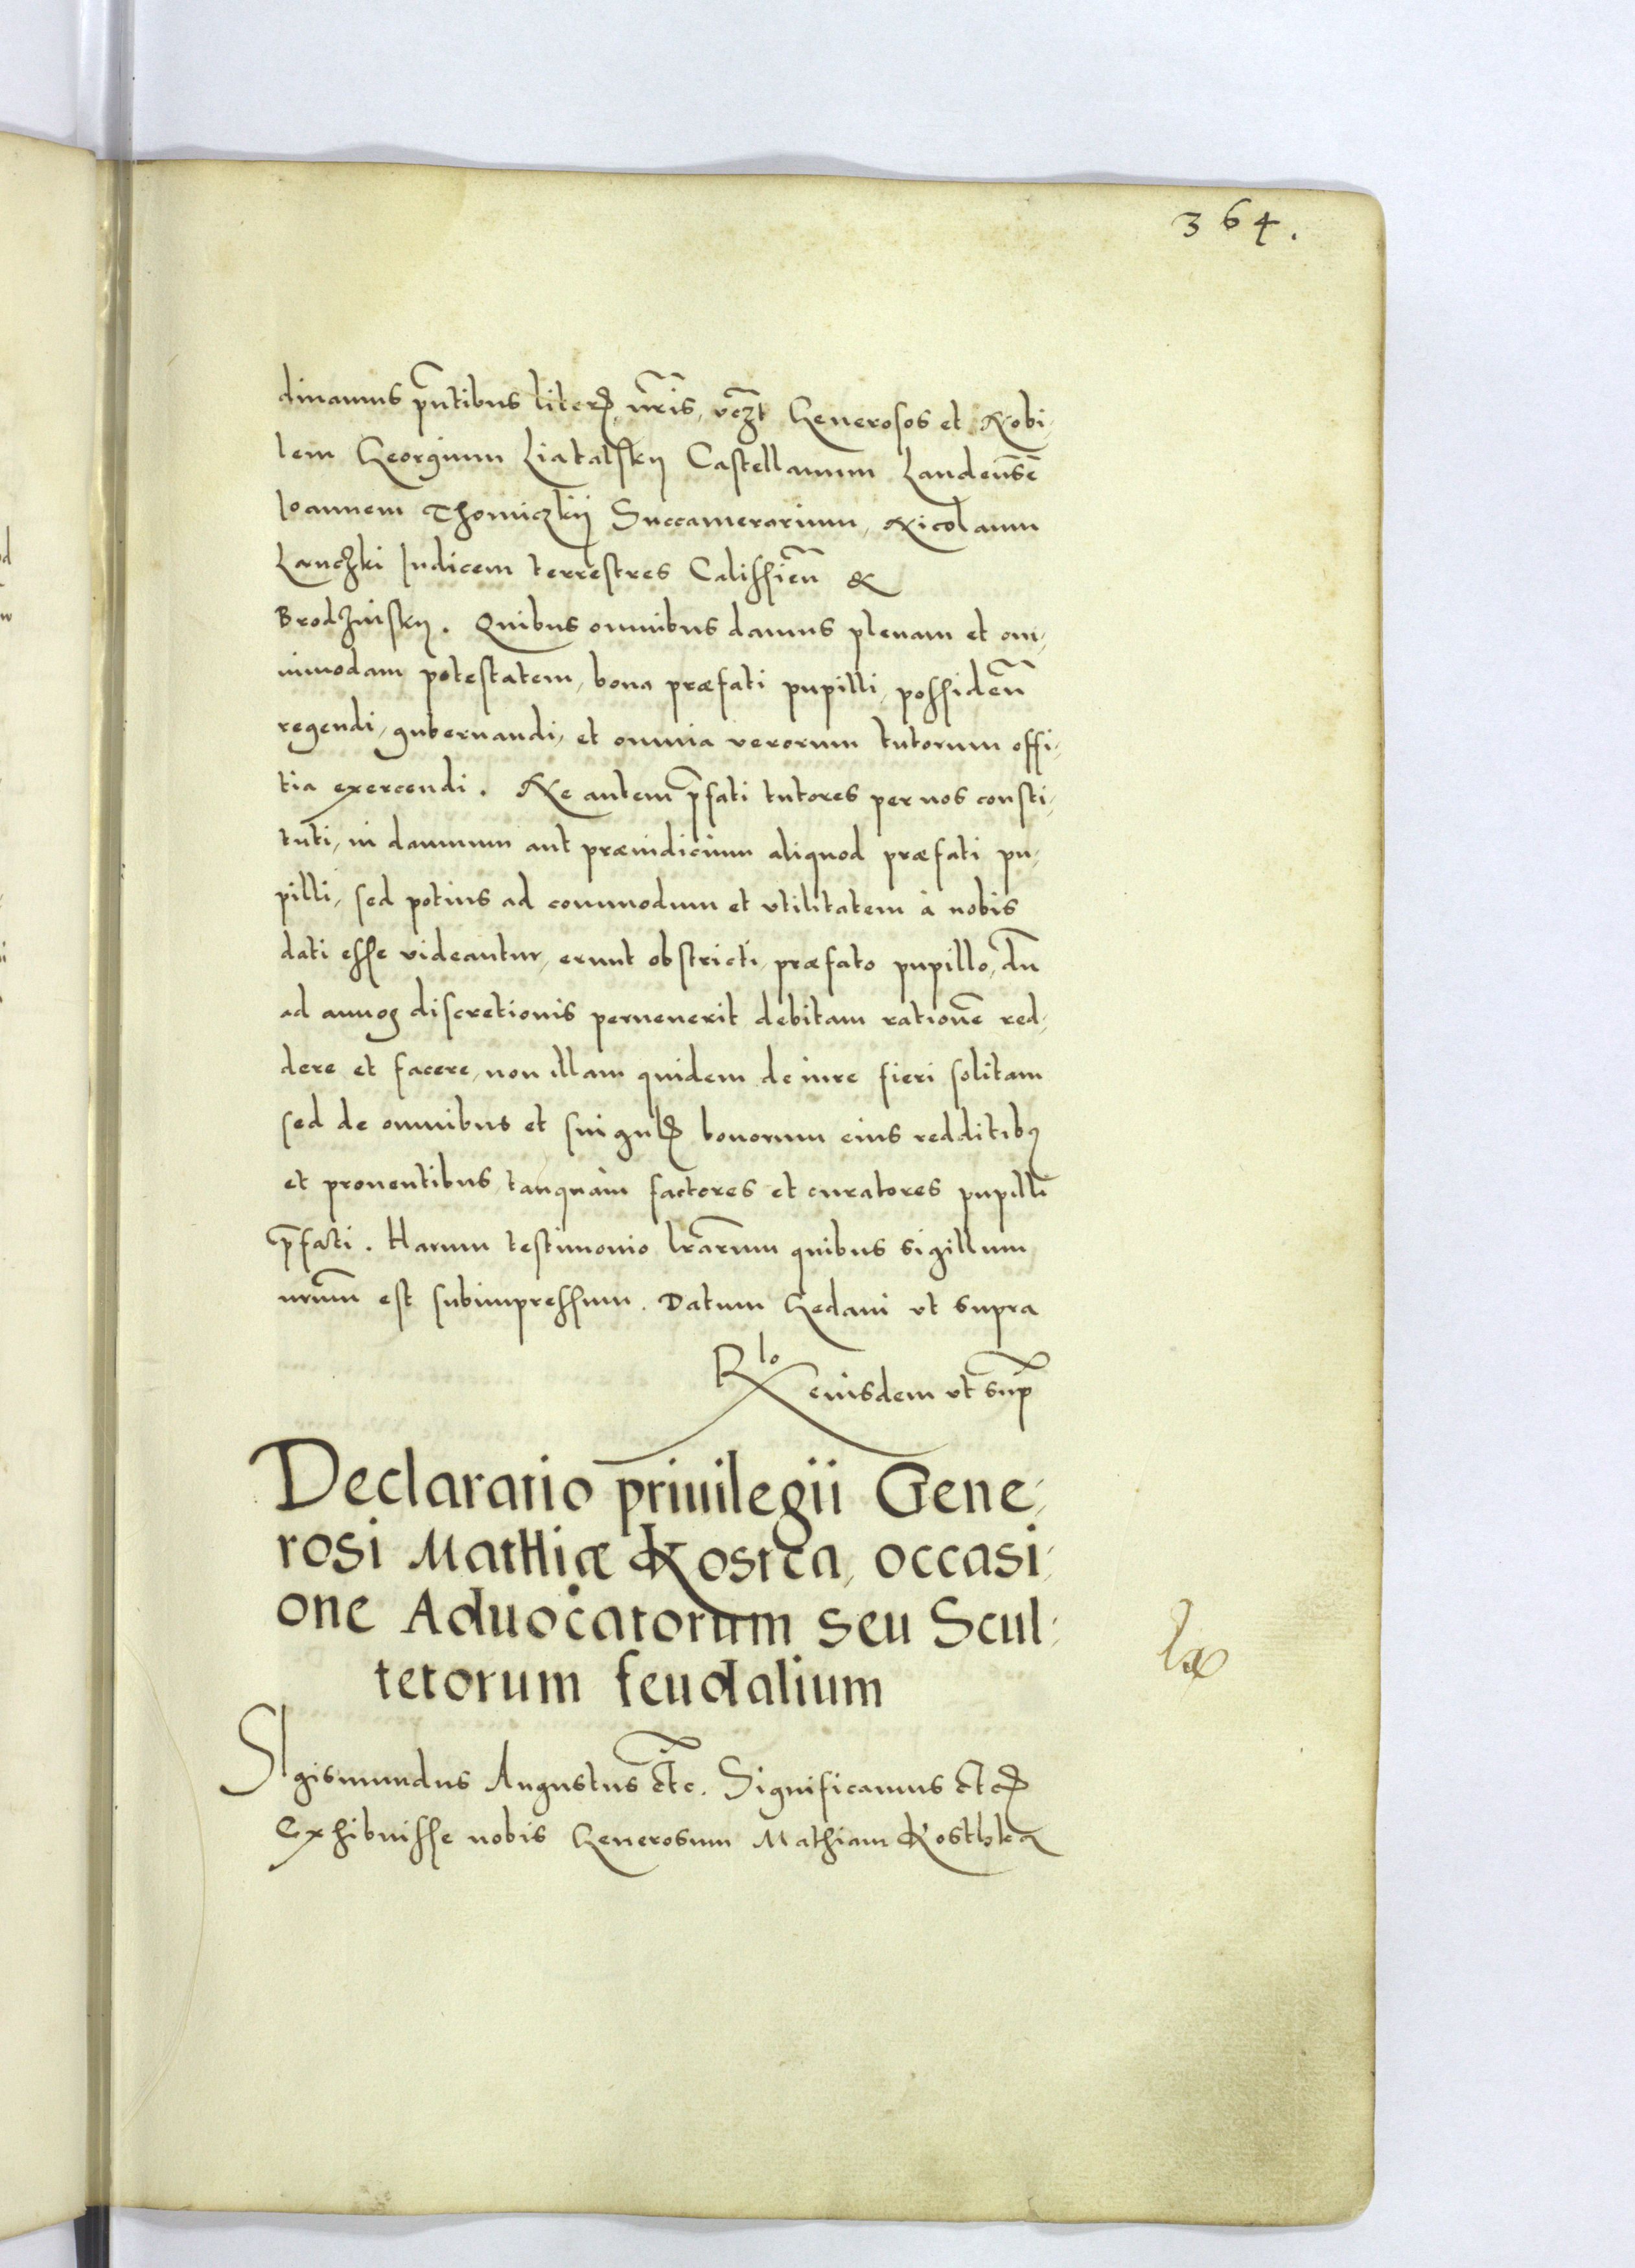 364.
dinamus pn̄tibus literꝭ, nr̄is, vcz̄t Generosos et Nobi,
lem Georgium Liatalskÿ Castellanum Landeñsē
Ioannem Thomiczkÿ Succamerarium, Nicolaum
Lanczki Iudicem terrestres Calissieñ &
Brodzinskÿ. Quibus omnibus damus plenam et om,
nimodam potestatem, bona præfati pupilli, possideñ
regendi, gubernandi, et omnia verorum tutorum offi,
tia exercendi. Ne autem p̄fati tutores per nos consti,
tuti, in damnum aut præiudicium aliquod præfati pu,
pilli, sed potius ad commodum et vtilitatem à nobis
dati esse videantur, erunt obstricti, præfato pupillo, dū
ad annos discretionis peruenerit debitam rationē red,
dere et facere, non illam quidem de iure fieri solitam
sed de omnibus et singulꝭ bonorum eius redditibꝫ
et prouentibus, tanquàm factores et curatores pupilli
p̄fati. Harum testimonio lr̄arum quibus sigillum
nr̄um est subimpressum. Datum Gedani vt supra
Rlo eiusdem vt sup̄
Declaratio priuilegii Gene,
rosi Matthiæ Kostca, occasi,
one Aduocatorum seu Scul,
tetorum feudalium
SIgismundus Augustus etc̄. Significamus etcꝭ
Exhibuisse nobis Generosum Mathiam Kosthka